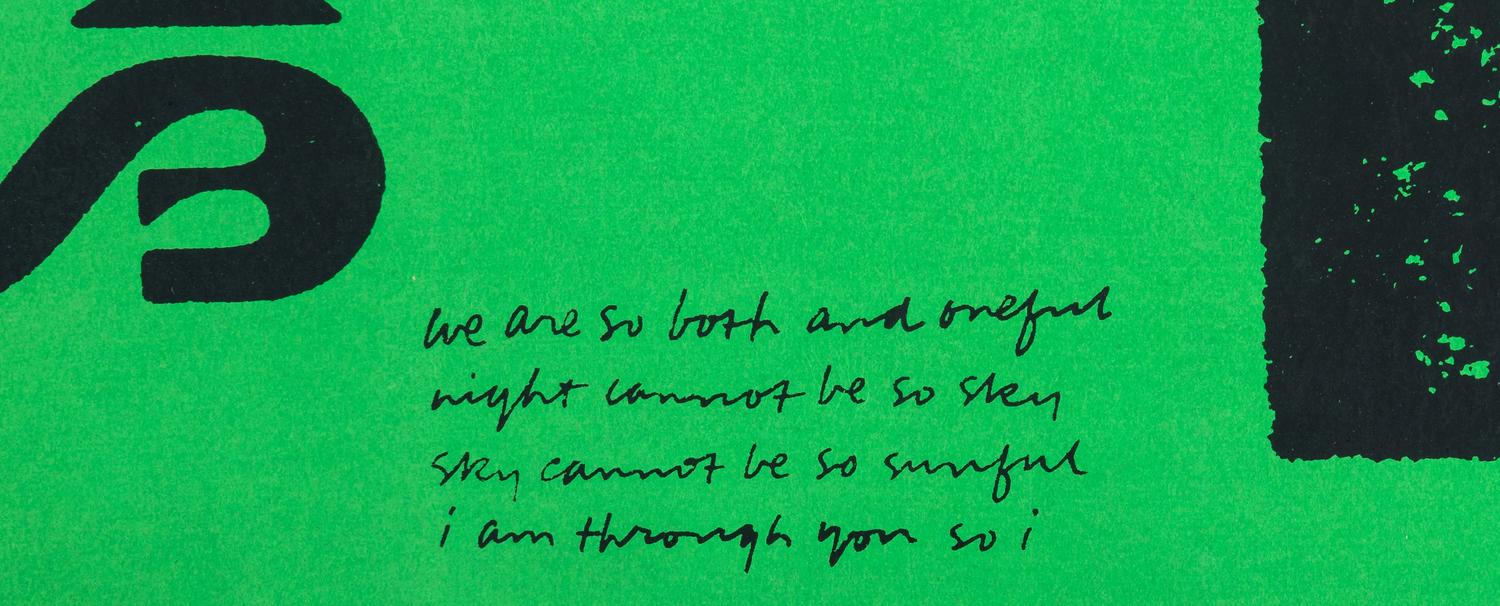 we are so both and oneful
night cannot be so sky
sky cannot be so sunful
i am through you so i